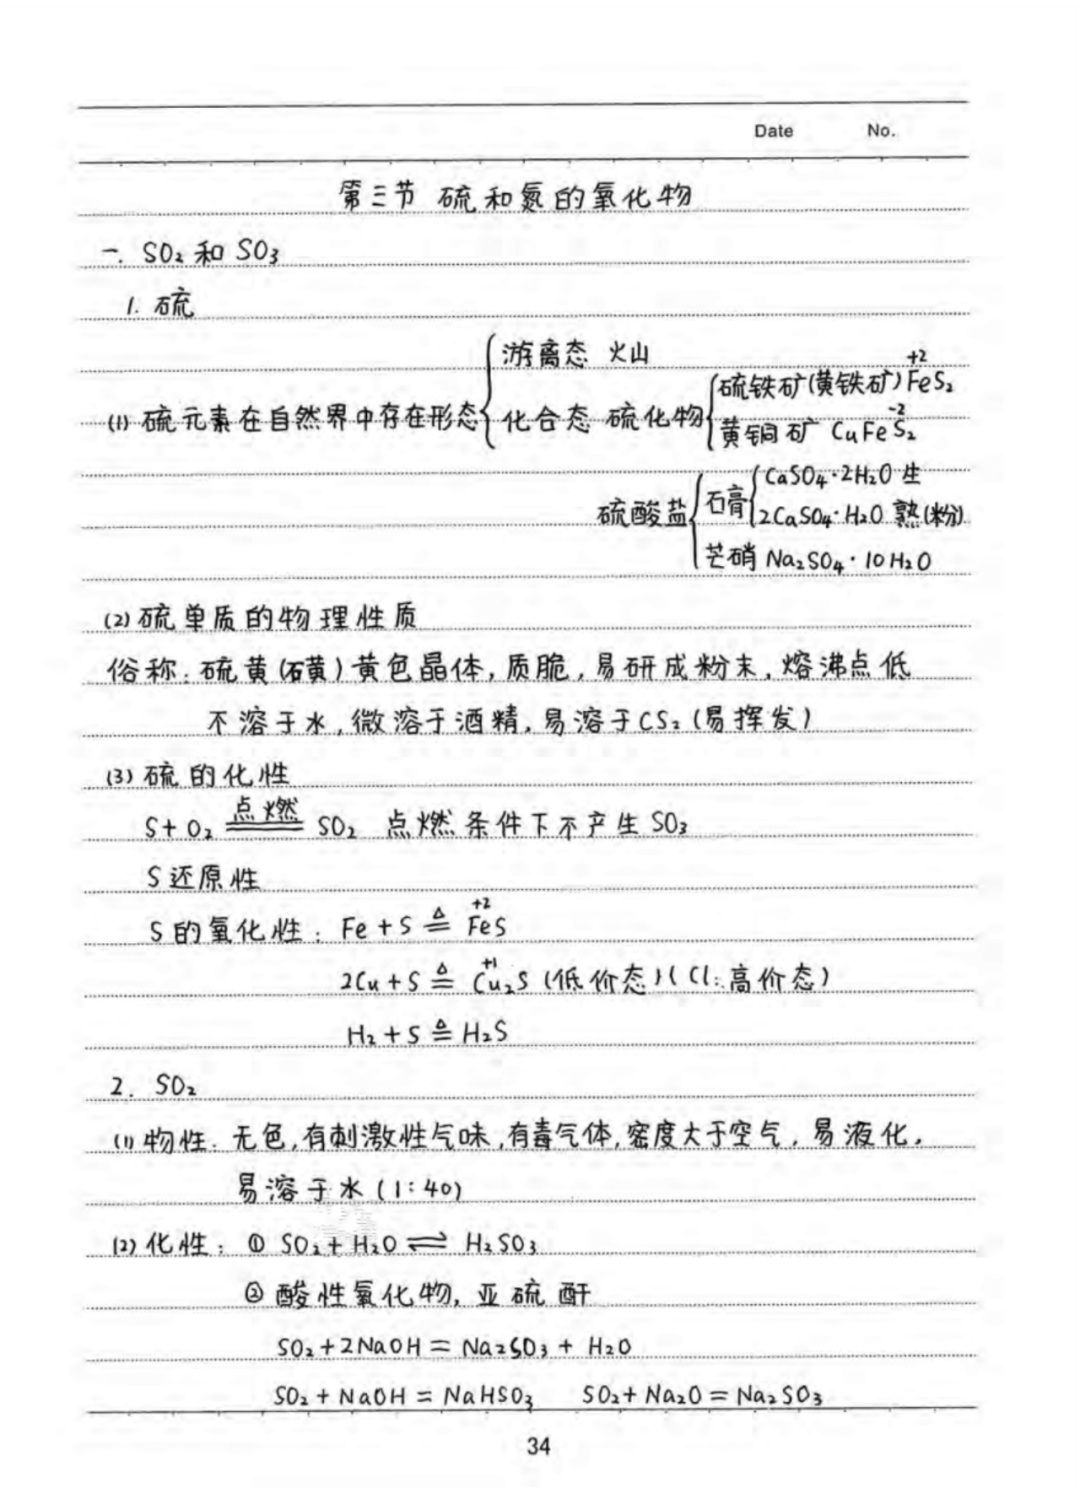 Date No.
第三节 硫和氮的氧化物
一. SO₂ 和 SO₃
1. 硫
(1) 硫元素在自然界中存在形态 { 游离态 火山
化合态 硫化物 { 硫铁矿(黄铁矿) FeS₂ +2
黄铜矿 CuFeS₂ -2
硫酸盐 { 石膏 { CaSO₄·2H₂O 生
2CaSO₄·H₂O 熟(粉)
芒硝 Na₂SO₄·10H₂O
(2) 硫单质的物理性质
俗称: 硫黄(石黄) 黄色晶体, 质脆, 易研成粉末, 熔沸点低
不溶于水, 微溶于酒精, 易溶于CS₂ (易挥发)
(3) 硫的化性
S + O₂ 点燃═ SO₂ 点燃条件下不产生 SO₃
S还原性
S的氧化性: Fe + S △═ FeS +2
2Cu + S △═ Cu₂S +1 (低价态)(Cl: 高价态)
H₂ + S △═ H₂S
2. SO₂
(1) 物性: 无色, 有刺激性气味, 有毒气体, 密度大于空气, 易液化,
易溶于水 (1:40)
(2) 化性: ① SO₂ + H₂O ⇌ H₂SO₃
② 酸性氧化物, 亚硫酐
SO₂ + 2NaOH = Na₂SO₃ + H₂O
SO₂ + NaOH = NaHSO₃ SO₂ + Na₂O = Na₂SO₃
34